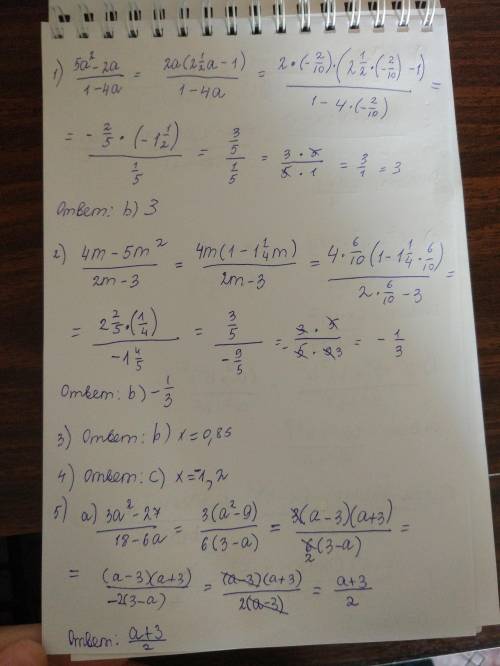 1) (5a²-2a)/(1-4a) = (2a(2 1/2 a-1))/(1-4a) = (2·(-2/10)·(2 1/2·(-2/10)-1))/(1-4·(-2/10)) =
= (-2/5·(-1 1/2))/(1/5) = (3/5)/(1/5) = (3·5)/(5·1) = 3/1 = 3
Ответ: b) 3
2) (4m-5m²)/(2m-3) = (4m(1-1 1/4 m))/(2m-3) = (4·6/10(1-1 1/4·6/10))/(2·6/10-3) =
= (2 2/5·(1/4))/(-1 4/5) = (3/5)/(-9/5) = -(3·5)/(5·9 3) = -1/3
Ответ: b) -1/3
3) Ответ: b) x=0,85
4) Ответ: c) x=-1,2
5) a) (3a²-27)/(18-6a) = (3(a²-9))/(6(3-a)) = (3(a-3)(a+3))/(6 2(3-a)) =
= ((a-3)(a+3))/(-2(3-a)) = ((a-3)(a+3))/(2(a-3)) = (a+3)/2
Ответ: (a+3)/2